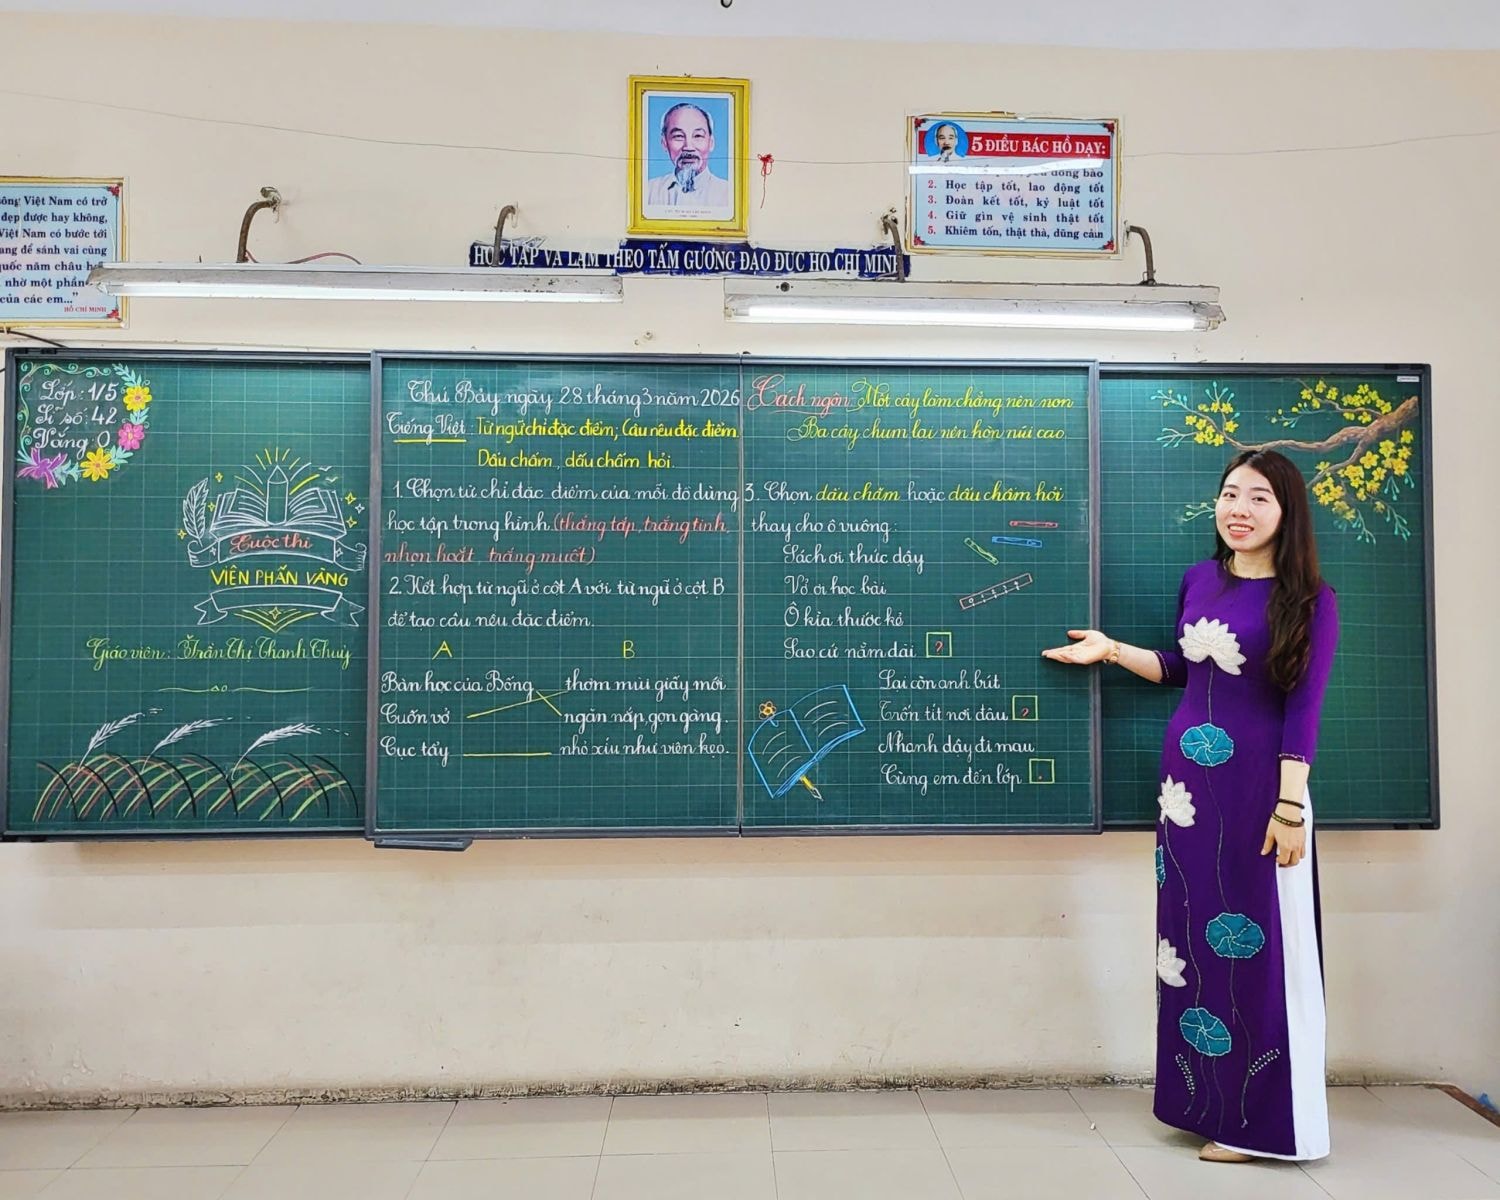 5 ĐIỀU BÁC HỒ DẠY:
đồng bào
2. Học tập tốt, lao động tốt
3. Đoàn kết tốt, kỷ luật tốt
4. Giữ gìn vệ sinh thật tốt
5. Khiêm tốn, thật thà, dũng cảm
sông Việt Nam có trở
đẹp được hay không,
Việt Nam có bước tới
để sánh vai cùng
quốc năm châu
nhờ một phần
của các em..."
HỒ CHÍ MINH
HỌC TẬP VÀ LÀM THEO TẤM GƯƠNG ĐẠO ĐỨC HỒ CHÍ MINH
Lớp: 1/5
Sĩ số: 42
Vắng: 0
Cuộc thi
VIÊN PHẤN VÀNG
Giáo viên: Trần Thị Thanh Thuỳ
Thứ Bảy ngày 28 tháng 3 năm 2026
Tiếng Việt: Từ ngữ chỉ đặc điểm; Câu nêu đặc điểm.
Dấu chấm, dấu chấm hỏi.
1. Chọn từ chỉ đặc điểm của mỗi đồ dùng
học tập trong hình. (thẳng tắp, trắng tinh,
nhọn hoắt, trắng muốt)
2. Kết hợp từ ngữ ở cột A với từ ngữ ở cột B
để tạo câu nêu đặc điểm.
A B
Bàn học của Bống thơm mùi giấy mới
Cuốn vở ngăn nắp, gọn gàng.
Cục tẩy nhỏ xíu như viên kẹo.
Cách ngôn: Một cây làm chẳng nên non
Ba cây chụm lại nên hòn núi cao
3. Chọn dấu chấm hoặc dấu chấm hỏi
thay cho ô vuông:
Sách ơi thức dậy
Vở ơi học bài
Ô kìa thước kẻ
Sao cứ nằm dài ?
Lại còn anh bút
Trốn tít nơi đâu ?
Nhanh dậy đi mau
Cùng em đến lớp .